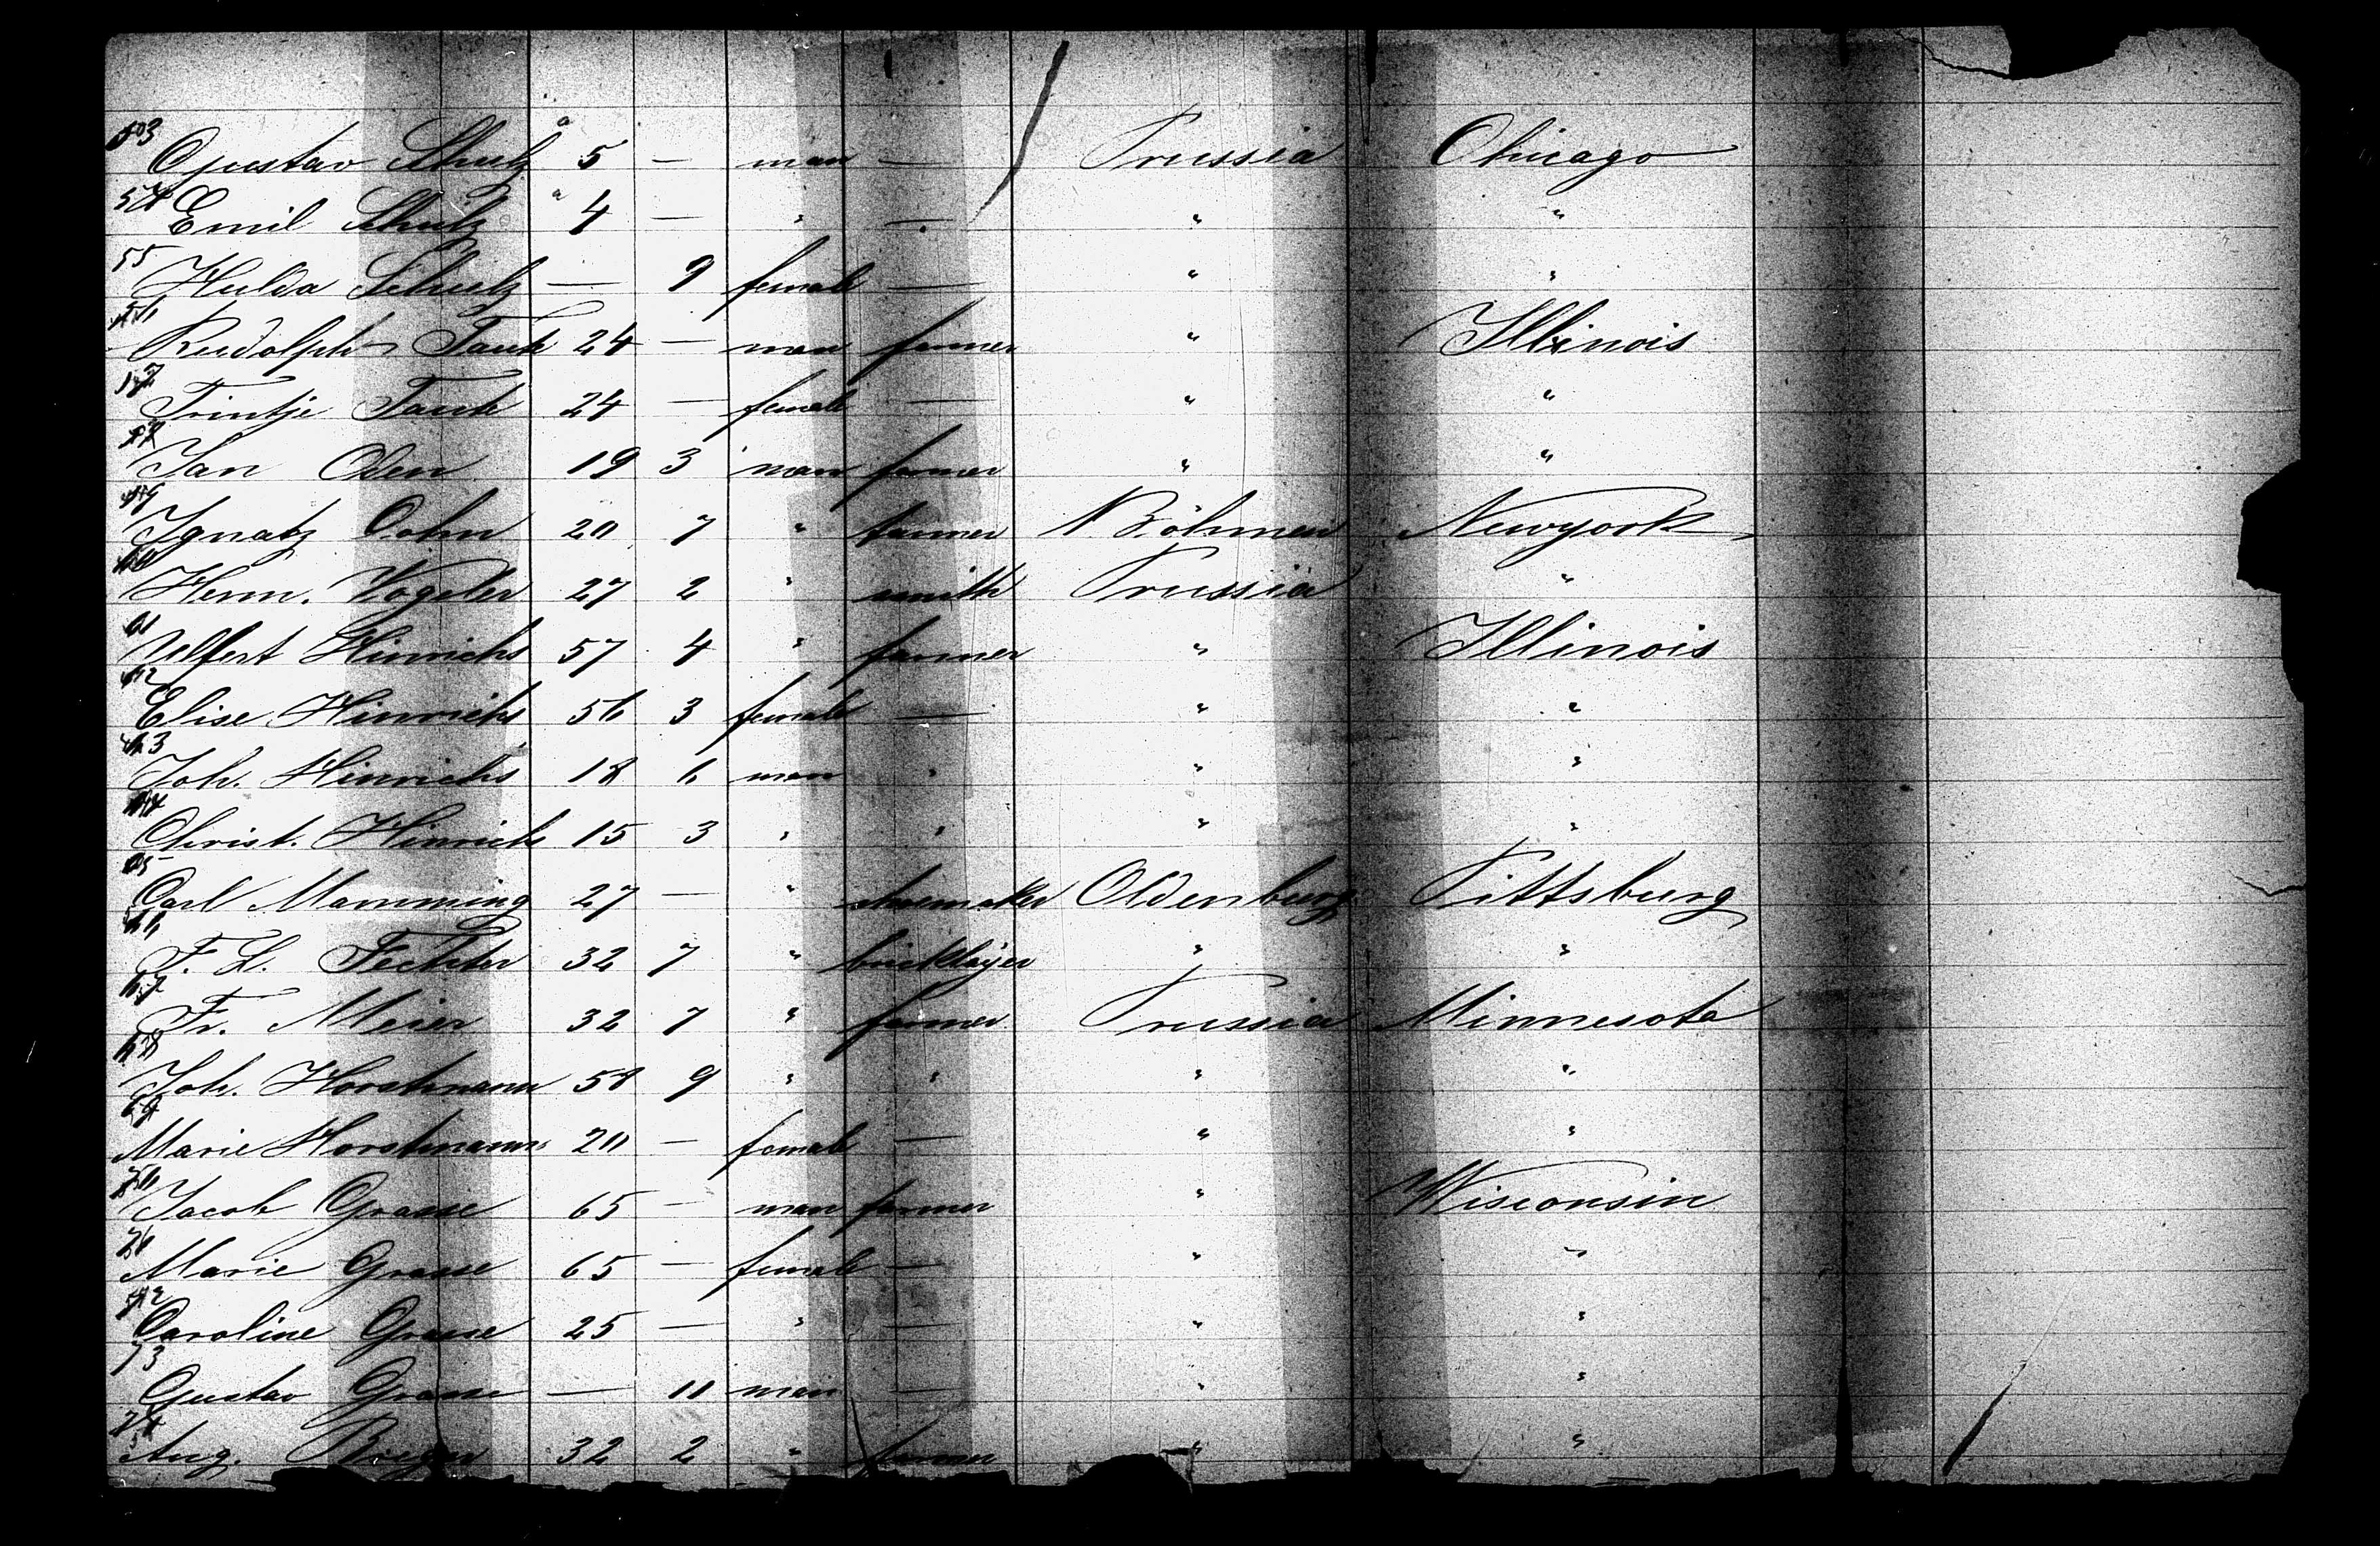 53 Gustav Schulz 5 — man — Prussia Chicago
54 Emil Schulz 4 — " — " "
55 Hulda Schulz — 9 female — " "
56 Rudolph Tauk 24 — man farmer " Illinois
57 Trintje Tauk 24 — female — " "
58 Jan Oden 19 3 man farmer " "
59 Ignatz Cohn 20 7 " farmer Böhmen Newyork
60 Herm. Vogeler 27 2 " smith Prussia "
61 Ulfert Hinrichs 57 4 " farmer " Illinois
62 Elise Hinrichs 56 3 female — " "
63 Joh. Hinrichs 18 6 man " " "
64 Christ. Hinrichs 15 3 " " " "
65 Carl Mamming 27 — " shoemaker Oldenburg Pittsburg
66 F. H. Fechter 32 7 " bricklayer " "
67 Fr. Meier 32 7 " farmer Prussia Minnesota
68 Joh. Horstmann 58 9 " " " "
69 Marie Horstmann 20 — female — " "
70 Jacob Grasse 65 — man farmer " Wisconsin
71 Marie Grasse 65 — female — " "
72 Caroline Grasse 25 — " — " "
73 Gustav Grasse — 11 man — " "
74 Aug. 32 2 " farmer " "